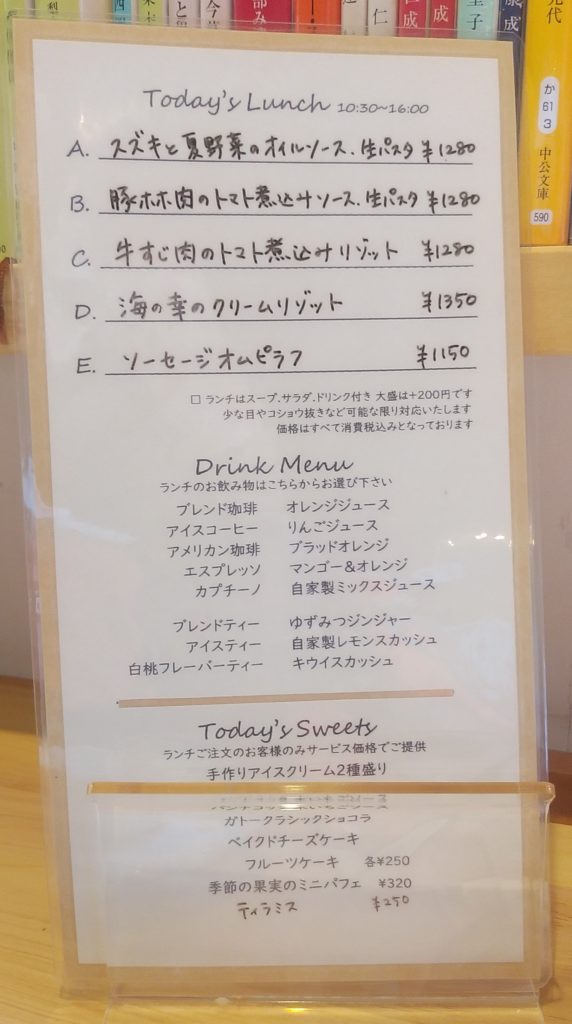 Today's Lunch 10:30~16:00
A. スズキと夏野菜のオイルソース.生パスタ ¥1280
B. 豚ホホ肉のトマト煮込みソース.生パスタ ¥1280
C. 牛すじ肉のトマト煮込みリゾット ¥1280
D. 海の幸のクリームリゾット ¥1350
E. ソーセージオムピラフ ¥1150
□ ランチはスープ.サラダ.ドリンク付き 大盛は+200円です
少な目やコショウ抜きなど可能な限り対応いたします
価格はすべて消費税込みとなっております
Drink Menu
ランチのお飲み物はこちらからお選び下さい
ブレンド珈琲 オレンジジュース
アイスコーヒー りんごジュース
アメリカン珈琲 ブラッドオレンジ
エスプレッソ マンゴー&オレンジ
カプチーノ 自家製ミックスジュース
ブレンドティー ゆずみつジンジャー
アイスティー 自家製レモンスカッシュ
白桃フレーバーティー キウイスカッシュ
Today's Sweets
ランチご注文のお客様のみサービス価格でご提供
手作りアイスクリーム2種盛り
ガトークラシックショコラ
ベイクドチーズケーキ
フルーツケーキ 各¥250
季節の果実のミニパフェ ¥320
ティラミス ¥250
か
61
3
中公文庫
590